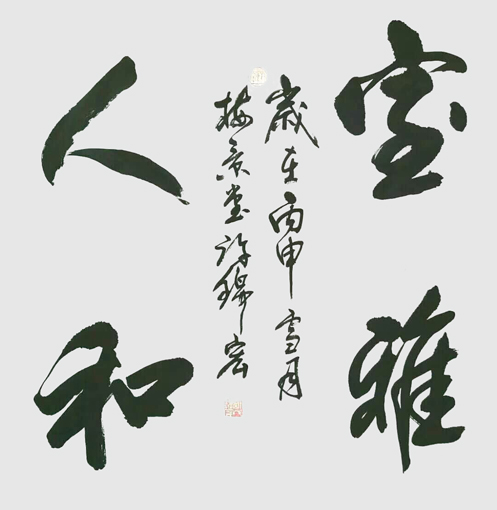 室雅
人和
歲在丙申雪月
梅景堂許錦宏